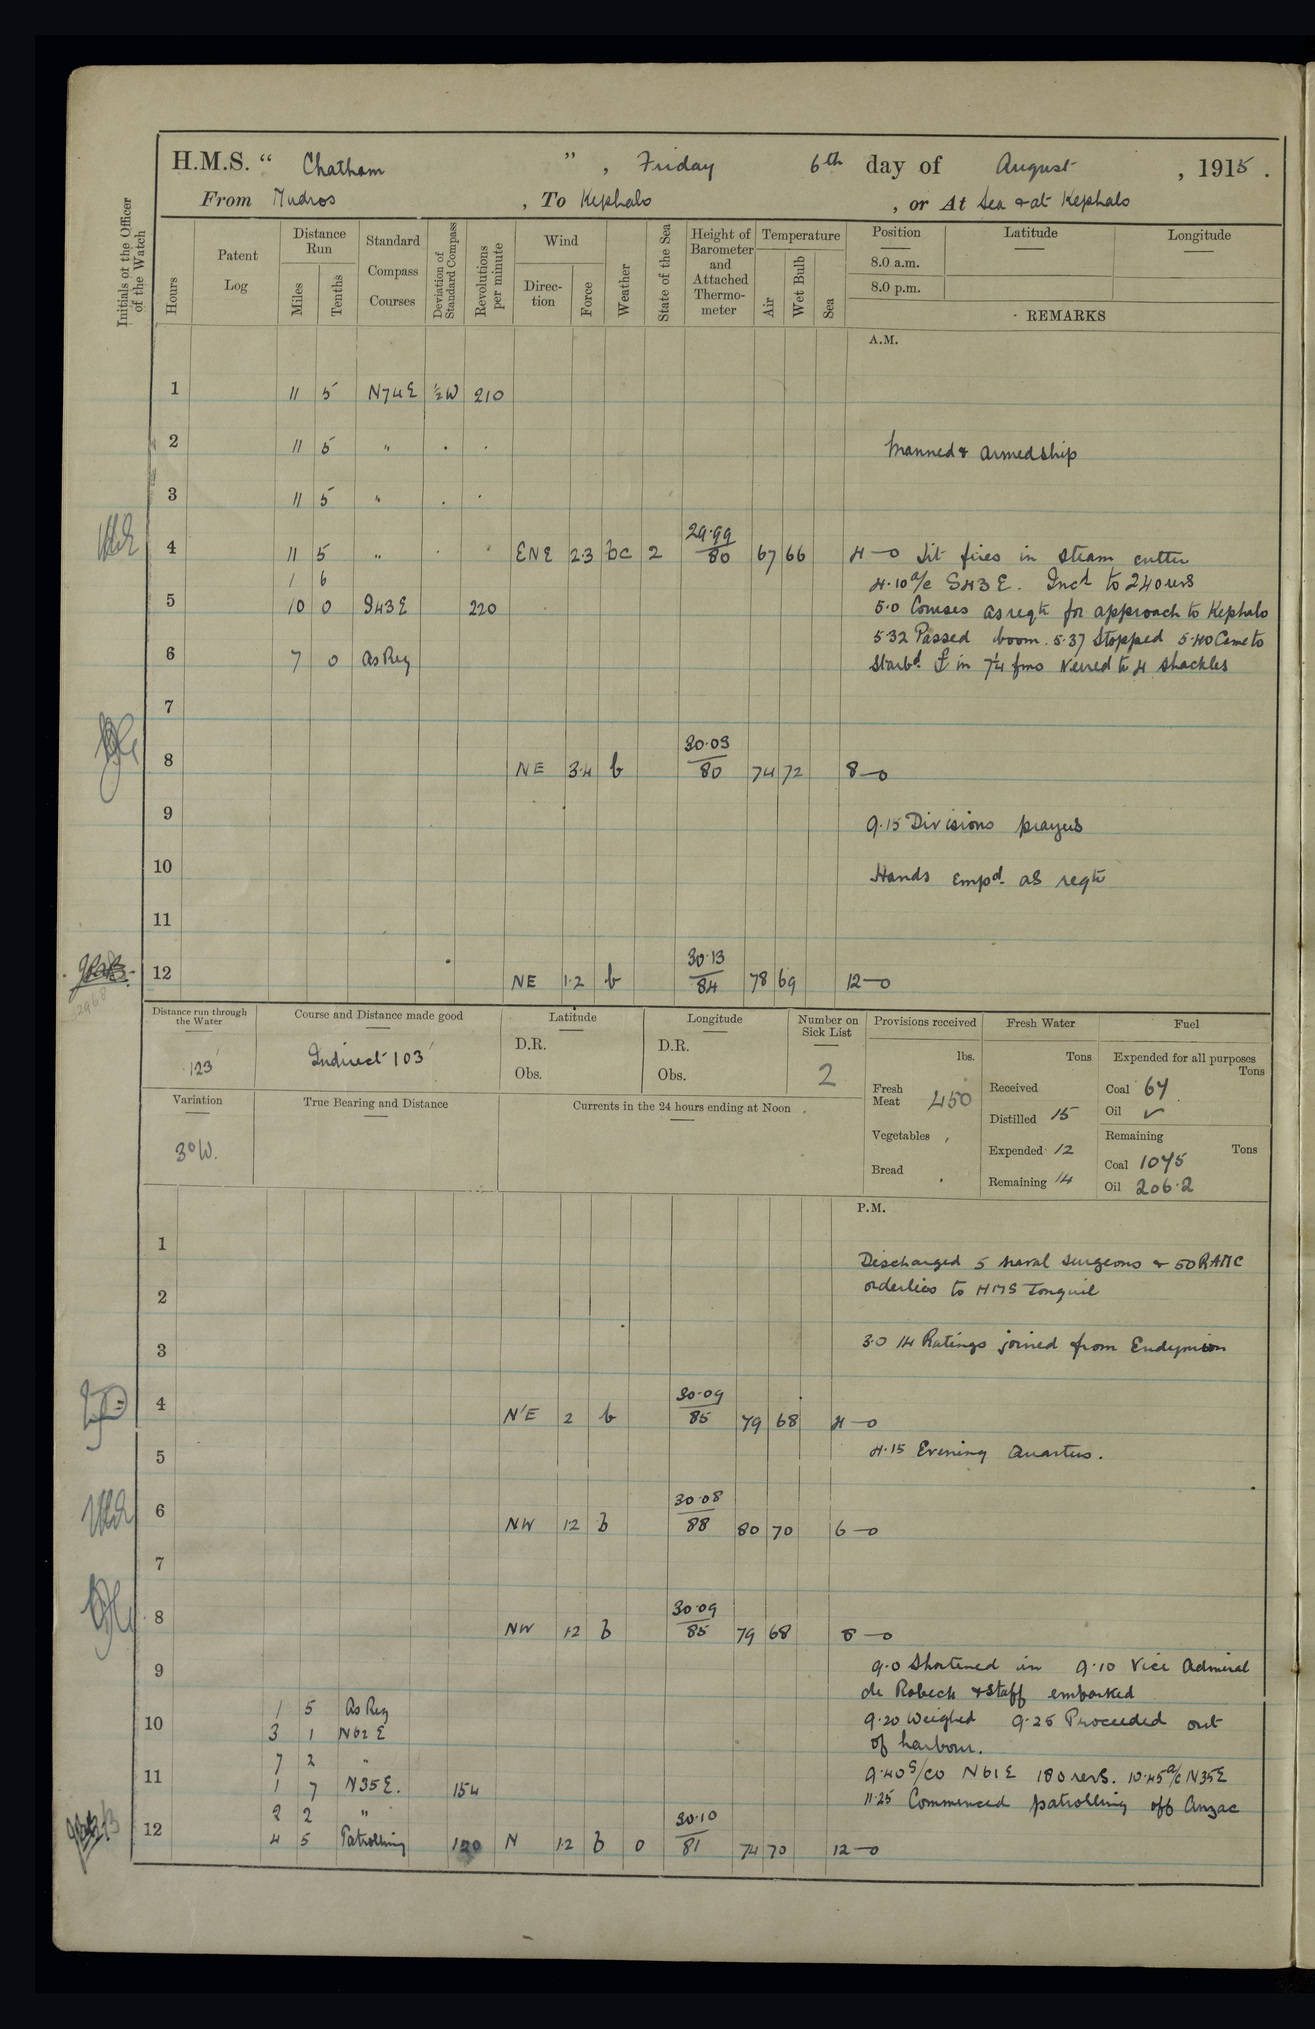 H.M.S. “ Chatham ” , Friday 6th day of August , 1915 .
From Mudros , To Kephalo , or At Sea & at Kephalo
Initials of the Officer of the Watch
Hours
Patent Log
Distance Run
Miles
Tenths
Standard Compass Courses
Deviation of Standard Compass
Revolutions per minute
Wind
Direc-tion
Force
Weather
State of the Sea
Height of Barometer and Attached Thermo-meter
Temperature
Air
Wet Bulb
Sea
Position
8.0 a.m.
8.0 p.m.
Latitude
Longitude
REMARKS
A.M.
1 11 5 N74E ½W 210
2 11 5 " . . Manned & armed ship
3 11 5 " . .
4 11 5 " . . ENE 2.3 bc 2 29.99/80 67 66 4—0 Lit fires in steam cutter
1 6 4.10 a/c S43E. Incd to 240 revs
5 10 0 S43E 220 5.0 Courses as reqte for approach to Kephalo
5.32 Passed boom. 5.37 Stopped 5.40 Came to
6 7 0 As Req Starbd in 7¼ fms Veered to 4 shackles
7
8 NE 3.4 b 30.03/80 74 72 8—0
9 9.15 Divisions prayers
10 Hands empd. as reqte
11
12 NE 1.2 b 30.13/84 78 69 12—0
Distance run through the Water
123'
Course and Distance made good
Indirect 103'
Latitude
D.R.
Obs.
Longitude
D.R.
Obs.
Number on Sick List
2
Provisions received
lbs.
Fresh Meat 450
Vegetables ,
Bread .
Fresh Water
Tons
Received
Distilled 15
Expended 12
Remaining 14
Fuel
Expended for all purposes
Tons
Coal 67
Oil ✓
Remaining
Tons
Coal 1075
Oil 206.2
Variation
3°W.
True Bearing and Distance
Currents in the 24 hours ending at Noon
P.M.
1 Discharged 5 naval surgeons & 50 RAMC
2 orderlies to HMS Jonquil
3 3.0 14 Ratings joined from Endymion
4 N'E 2 b 30.09/85 79 68 4—0
5 4.15 Evening Quarters.
6 NW 1.2 b 30.08/88 80 70 6—0
7
8 NW 1.2 b 30.09/85 79 68 8—0
9 9.0 Shortened in 9.10 Vice Admiral
de Robeck & Staff embarked
1 5 As Req
10 3 1 N62E 9.20 Weighed 9.25 Proceeded out
of harbour.
7 2 "
11 1 7 N35E. 154 9.40 S/Co N61E 180 revs. 10.45 a/c N35E
2 2 " 11.25 Commenced patrolling off Anzac
12 4 5 Patrolling 120 N 1.2 b 0 30.10/81 74 70 12—0